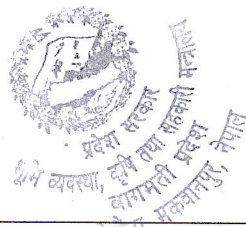 प्रदेश सरकार
भूमि व्यवस्था, कृषि तथा सहकारी मन्त्रालय
बागमती प्रदेश
मकवानपुर, नेपाल